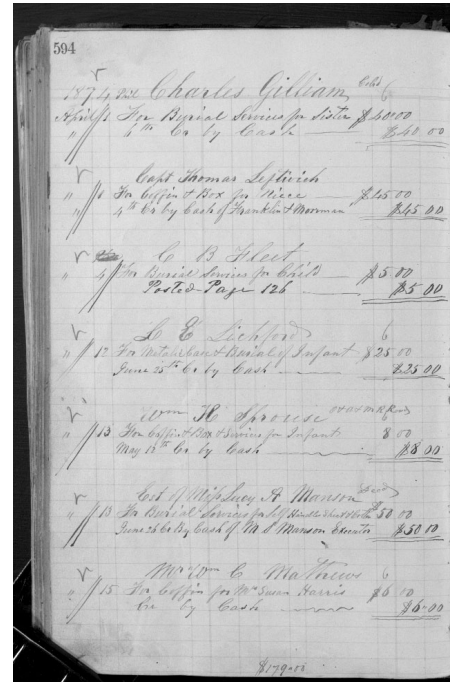 594
1874 Charles Gilliam Cold
April 1 For Burial Services for Sister $40.00
" 4th Cr by Cash $40 00
Capt Thomas Leftwich
" 1 For Coffin & Box for Niece $45 00
" 4th Cr by Cash of Franklin & Moorman $45 00
C B Fleet
" 4 For Burial Services for Child $5 00
Posted Page 126 $5 00
L E Lichford 6
" 12 For Metal Case & Burial of Infant $25 00
June 25th Cr by Cash $25 00
Wm H Sprouse
" 13 For Coffin & Box & Service for Infant 8 00
May 13th Cr by Cash $8 00
Est of Miss Lucy A. Manson Decd
" 13 For Burial Services for Self $50 00
June 26 Cr By Cash of M S Manson Executor $50 00
Mr Wm C Mathews 6
" 15 For Coffin for Mrs Susan Harris $6 00
Cr by Cash $6.00
$179.00